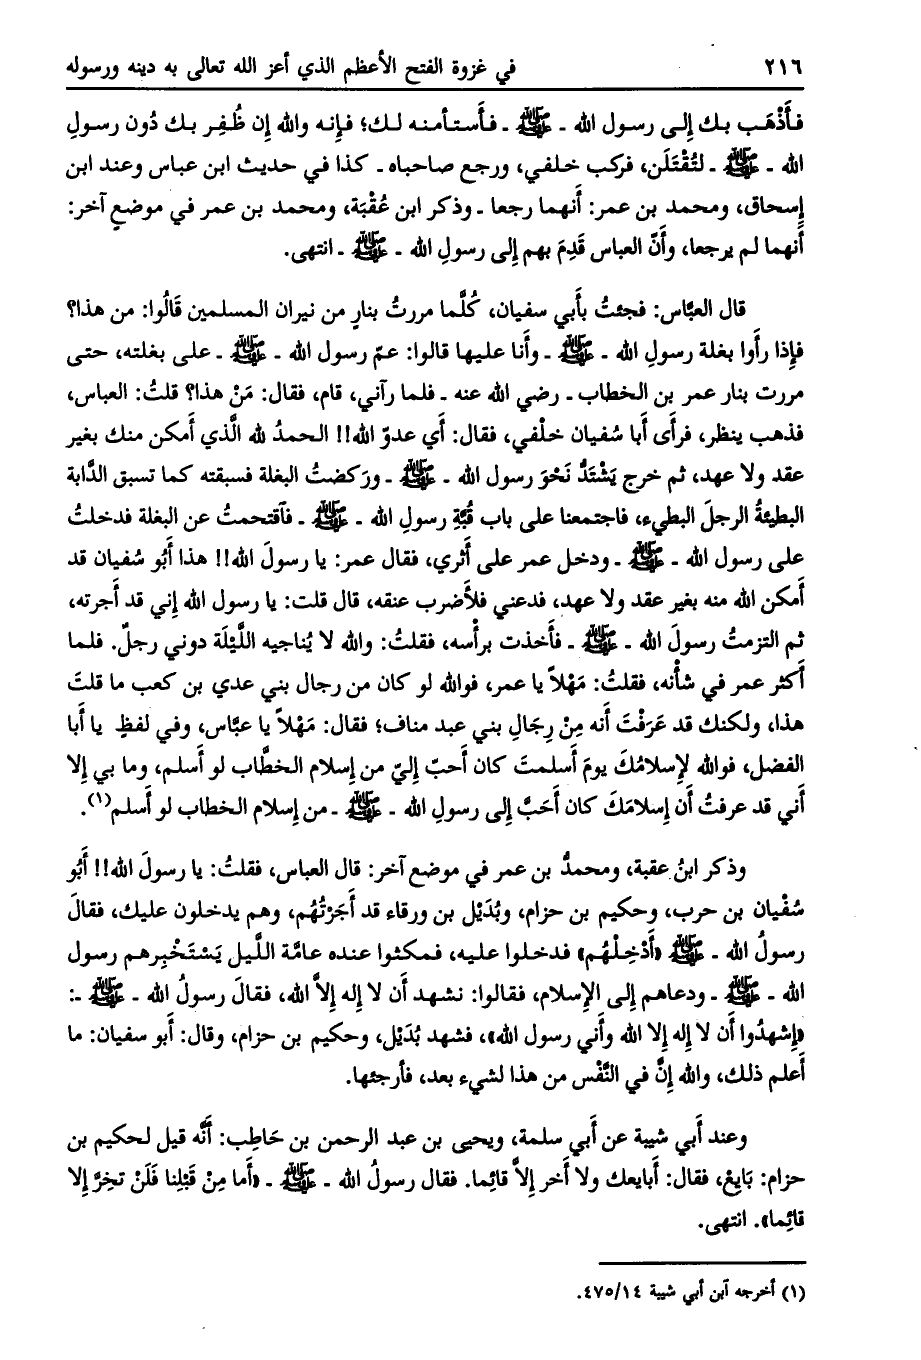 ٢١٦ في غزوة الفتح الأعظم الذي أعز الله تعالى به دينه ورسوله
فأَذْهَب بك إِلى رسول الله ـ ﷺ ـ فأَستأمنه لك؛ فإنه والله إن ظُفِر بك دُون رسولِ
الله ـ ﷺ ـ لتُقْتَلَن، فركب خلفي، ورجع صاحباه ـ كذا في حديث ابن عباس وعند ابن
إسحاق، ومحمد بن عمر: أَنهما رجعا ـ وذكر ابن عُقْبَة، ومحمد بن عمر في موضعٍ آخر:
أَنهما لم يرجعا، وأَنّ العباس قَدِمَ بهم إِلى رسولِ الله ـ ﷺ ـ انتهى.
قال العبَّاس: فجئتُ بأَبي سفيان، كُلَّما مررتُ بنارٍ من نيران المسلمين قَالُوا: من هذا؟
فإِذا رأَوا بغلة رسولِ الله ـ ﷺ ـ وأَنا عليها قالوا: عمّ رسول الله ـ ﷺ ـ على بغلته، حتى
مررت بنار عمر بن الخطاب ـ رضي الله عنه ـ فلما رآني، قام، فقال: مَنْ هذا؟ قلتُ: العباس،
فذهب ينظر، فرأَى أَبا سُفيان خلْفي، فقال: أَي عدوّ الله!! الحمدُ لله الَّذي أَمكن منك بغير
عقد ولا عهد، ثم خرج يَشْتَدُّ نَحْوَ رسول الله ـ ﷺ ـ ورَكضتُ البغلة فسبقته كما تسبق الدَّابة
البطيئةُ الرجلَ البطيء، فاجتمعنا على باب قُبَّةِ رسولِ الله ـ ﷺ ـ فآقتحمتُ عن البغلة فدخلتُ
على رسول الله ـ ﷺ ـ ودخل عمر على أَثري، فقال عمر: يا رسولَ الله!! هذا أَبُو سُفيان قد
أَمكن الله منه بغير عقد ولا عهد، فدعني فلأَضرب عنقه، قال قلت: يا رسول الله إِني قد أَجرته،
ثم التزمتُ رسولَ الله ـ ﷺ ـ فأَخذت برأْسه، فقلتُ: والله لا يُناجيه اللَّيْلَة دوني رجلٌ. فلما
أَكثر عمر في شأْنه، فقلتُ: مَهْلاً يا عمر، فوالله لو كان من رجال بني عدي بن كعب ما قلتَ
هذا، ولكنك قد عَرَفْتَ أَنه مِنْ رِجَالِ بني عبد مناف؛ فقال: مَهْلاً يا عبَّاس، وفي لفظٍ يا أَبا
الفضل، فوالله لإِسلامُكَ يومَ أَسلمتَ كان أَحبّ إِليّ من إِسلام الخطَّاب لو أَسلم، وما بي إِلا
أَني قد عرفتُ أَن إِسلامَكَ كان أَحَبَّ إِلى رسولِ الله ـ ﷺ ـ من إِسلام الخطاب لو أَسلم(١).
وذكر ابنُ عقبة، ومحمدُّ بن عمر في موضع آخر: قال العباس، فقلتُ: يا رسولَ الله!! أَبُو
سُفْيان بن حرب، وحكيم بن حزام، وبُدَيْل بن ورقاء قد أَجَرْتُهُم، وهم يدخلون عليك، فقالَ
رسولُ الله ـ ﷺ «أَدْخِلْهُم» فدخلوا عليه، فمكثوا عنده عامَّة الليل يَسْتَخْبِرهم رسول
الله ـ ﷺ ـ ودعاهم إِلى الإِسلام، فقالوا: نشهد أَن لا إِله إِلاَّ الله، فقالَ رسولُ الله ـ ﷺ ـ:
«إشهدُوا أَن لا إِله إِلا الله وأَني رسول الله»، فشهد بُدَيْل، وحكيم بن حزام، وقال: أَبو سفيان: ما
أَعلم ذلك، والله إِنَّ في النَّفْس من هذا لشيء بعد، فأَرجئها.
وعند أَبي شيبة عن أَبي سلمة، ويحيى بن عبد الرحمن بن حَاطِب: أَنَّه قيل لحكيم بن
حزام: بَايِعْ، فقال: أُبايعك ولا أَخر إِلاَّ قائِما. فقال رسولُ الله ـ ﷺ ـ «أَما مِنْ قَبْلِنا فَلَنْ تخِرَّ إِلا
قائِما». انتهى.
(١) أخرجه آبن أبي شيبة ٤٧٥/١٤.